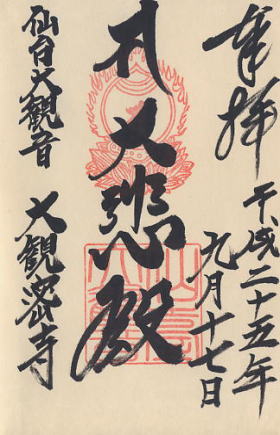 奉拝
平成二十五年
九月十七日
大悲殿
仙台大観音
大観密寺